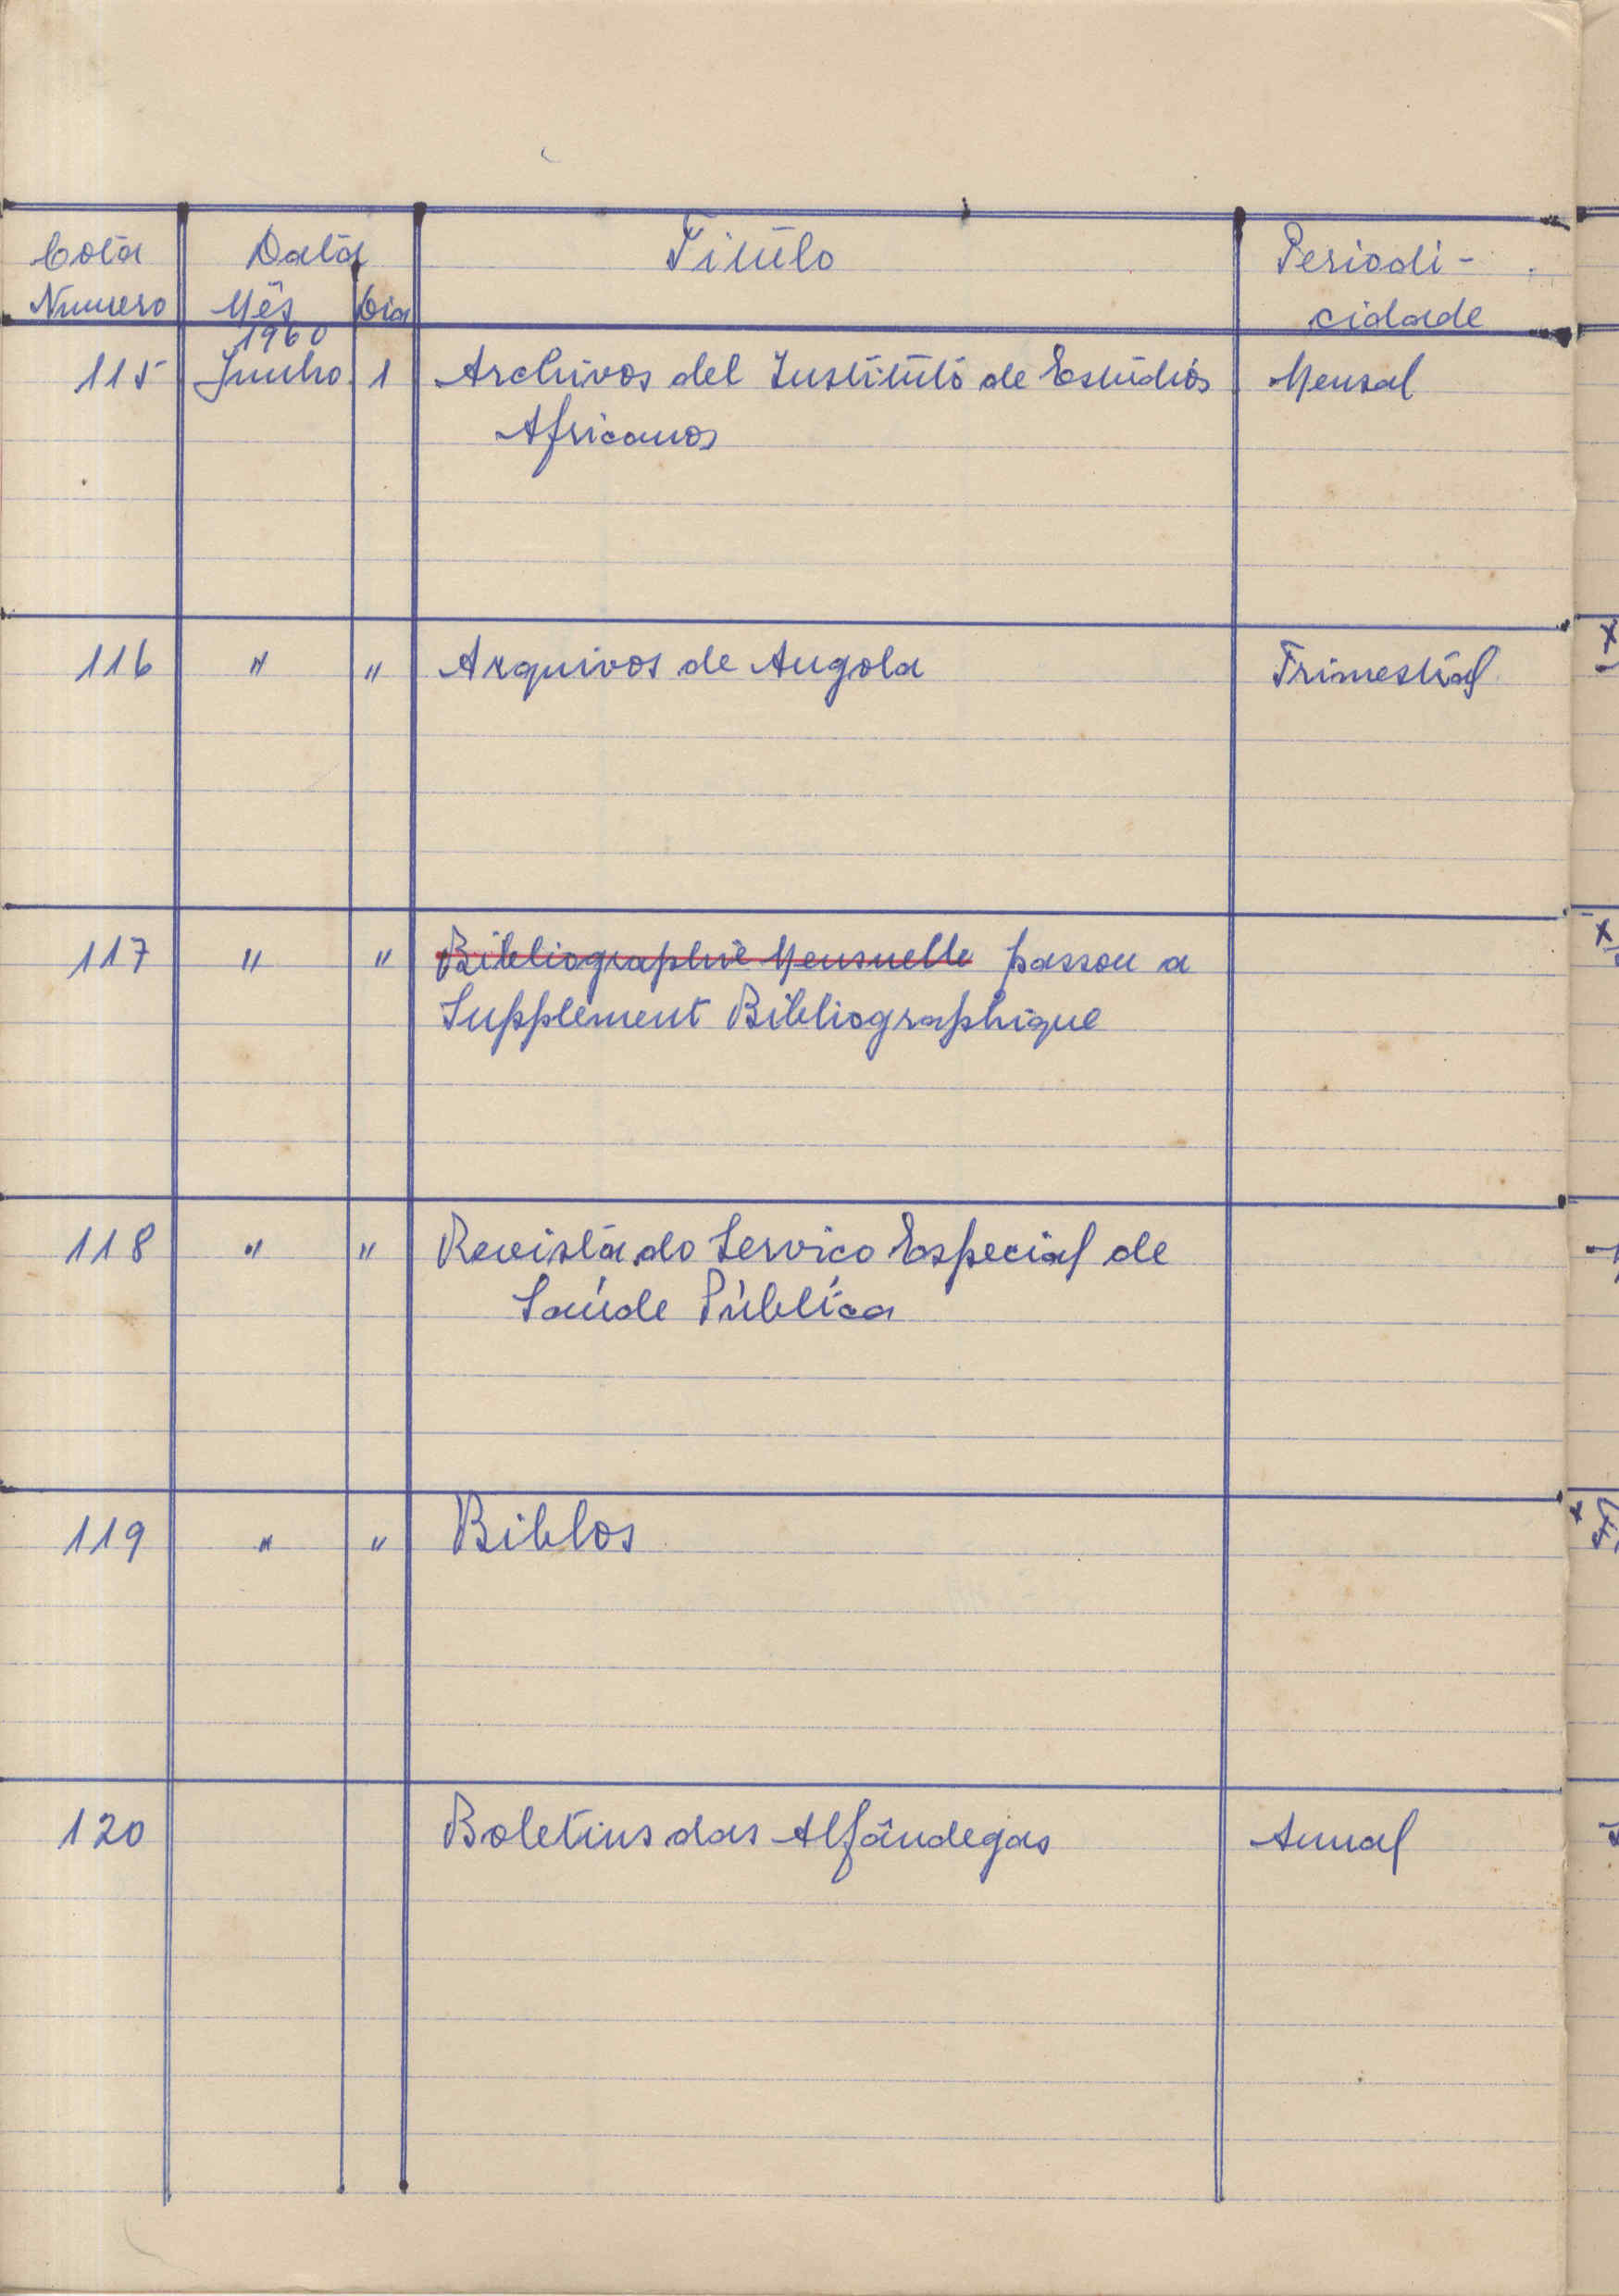 Cota Data Titulo Periodi-
Numero Mês Dia cidade
1960
115 Junho 1 Archivos del Instituto de Estudios Mensal
Africanos
116 " " Arquivos de Angola Trimestral
117 " " Bibliographie Mensuelle passou a
Supplément Bibliographique
118 " " Revista do Servico Especial de
Saúde Pública
119 " " Biblos
120 Boletins das Alfândegas Anual